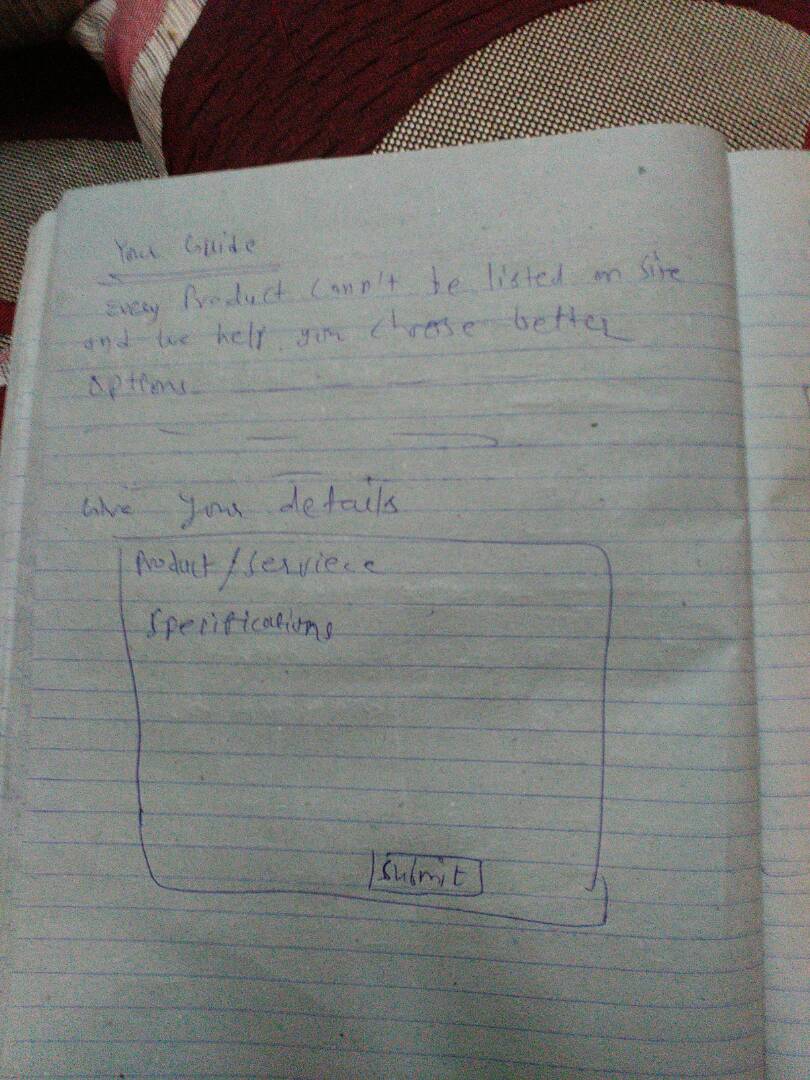 Your Guide
Every Product Cann't be listed on site
and we help you choose better
options
Give Your details
Product / Serviece
Specifications
Submit